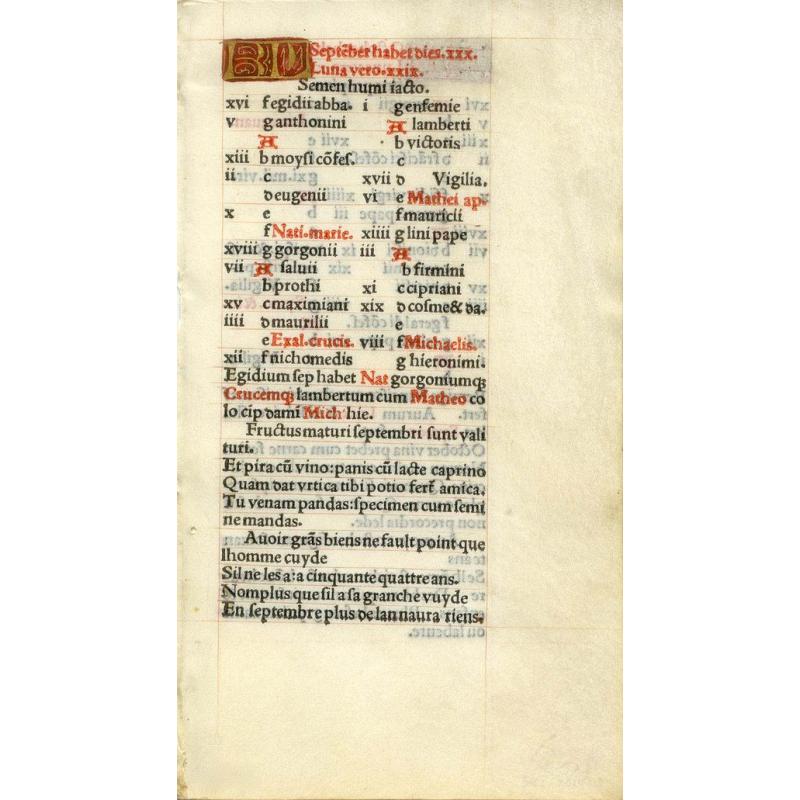 KL Septẽber habet dies.xxx.
Luna vero.xxix.
Semen humi iacto.
xvi f egidii abba. i g enfemie
v g anthonini A lamberti
A b victoris
xiii b moyſi cõfeſ. c
ii c xvii d Vigilia.
d eugenii vi e Mathei ap.
x e f mauricii
f Nati.marie. xiiii g lini pape
xviii g gorgonii iii A
vii A ſaluii b firmini
b prothi xi c cipriani
xv c maximiani xix d coſme & da.
iiii d maurilii e
e Exal.crucis. viii f Michaelis.
xii f nichomedis g hieronimi.
Egidium ſep habet Nat gorgoniumqꝫ
Crucemqꝫ lambertum cum Matheo co
lo cip dami Mich hie.
Fructus maturi ſeptembri ſunt vali
turi.
Et pira cũ vino:panis cũ lacte caprino
Quam dat vrtica tibi potio fert amica.
Tu venam pandas:ſpecimen cum ſemi
ne mandas.
Auoir grãs biens ne fault point que
lhomme cuyde
Sil ne les a:a cinquante quattre ans.
Nomplus que ſil a ſa granche vuyde
En ſeptembre plus de lan naura riens.